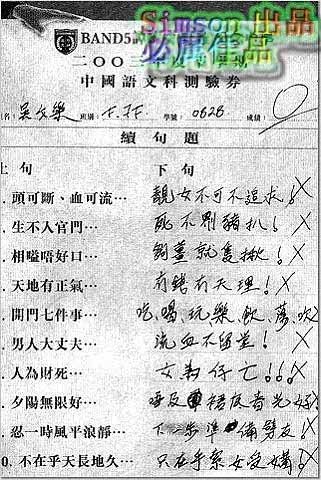 Simson 出品
必屬佳品
BAND5
二〇〇三年
中國語文科測驗券
姓名: 吳文樂 班別: 學號: 0626 成績: 0
續句題
上句 下句
. 頭可斷、血可流… 靚女不可不追求! X
. 生不人官門… 死不劏豬扒! X
. 相嗌唔好口… 夠薑就隻揪! X
. 天地有正氣… 有錢有天理! X
. 開門七件事… 吃喝玩樂飲蕩吹
. 男人大丈夫… 流血不留堂! X
. 人為財死… 女為仔亡!!! X
. 夕陽無限好… 唔及裙底春光好!
. 忍一時風平浪靜… 下一步準備劈友! X
0. 不在乎天長地久… 只在乎索女受媾! X